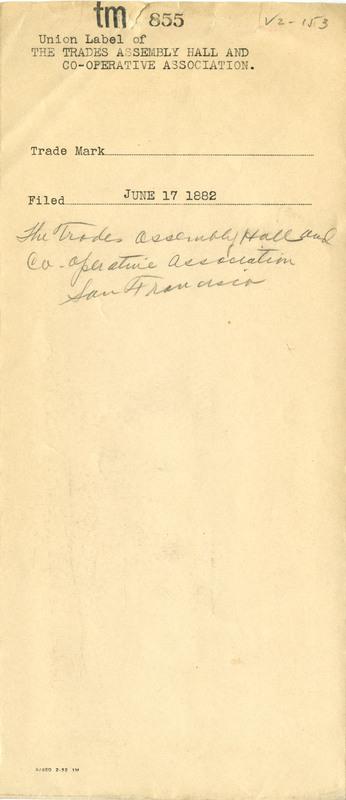 tm 855 V2-153
Union Label of
THE TRADES ASSEMBLY HALL AND
CO-OPERATIVE ASSOCIATION.
Trade Mark
Filed JUNE 17 1882
The Trades Assembly Hall and
Co-operative Association
San Francisco
2-32 1M